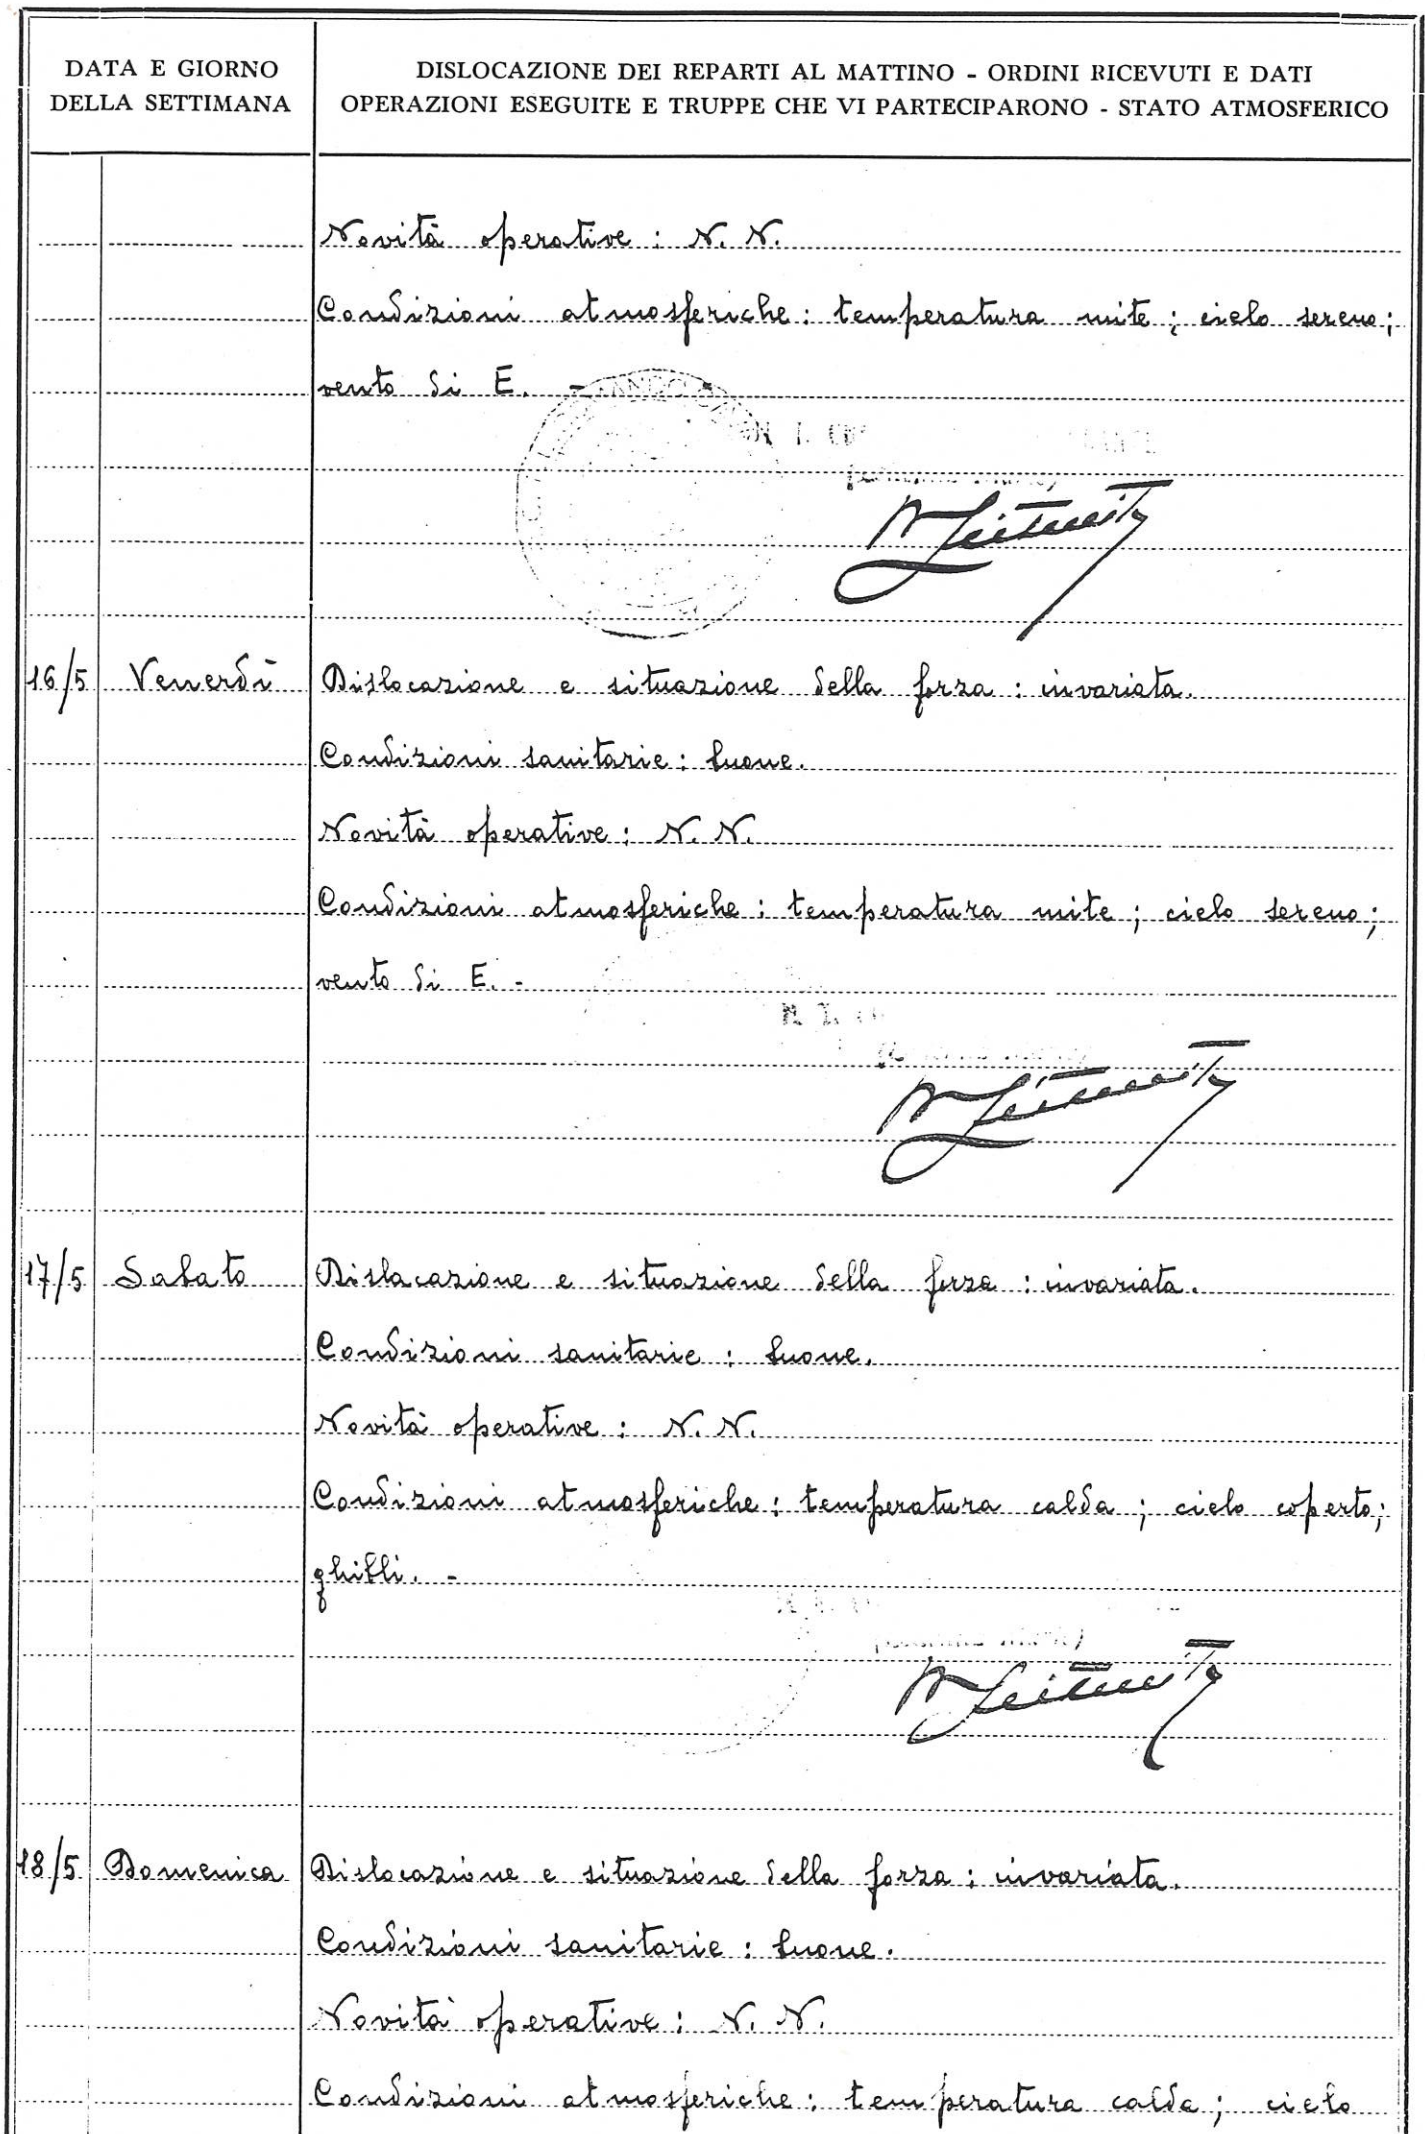 DATA E GIORNO
DELLA SETTIMANA
DISLOCAZIONE DEI REPARTI AL MATTINO - ORDINI RICEVUTI E DATI
OPERAZIONI ESEGUITE E TRUPPE CHE VI PARTECIPARONO - STATO ATMOSFERICO
Novità operative : N. N.
Condizioni atmosferiche : temperatura mite ; cielo sereno ;
vento di E. -
16/5 Venerdì Dislocazione e situazione della forza : invariata.
Condizioni sanitarie : buone.
Novità operative : N. N.
Condizioni atmosferiche : temperatura mite ; cielo sereno ;
vento di E. -
17/5 Sabato Dislocazione e situazione della forza : invariata.
Condizioni sanitarie : buone.
Novità operative : N. N.
Condizioni atmosferiche : temperatura calda ; cielo coperto ;
ghibli. -
18/5 Domenica Dislocazione e situazione della forza : invariata.
Condizioni sanitarie : buone.
Novità operative : N. N.
Condizioni atmosferiche : temperatura calda ; cielo